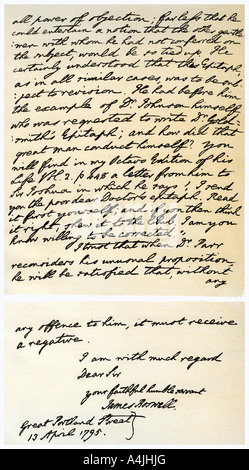 all power of objection; far less that he
could entertain a notion that the other gentle=
=men with whom he had not conferred on
the subject would be so tied up. He
certainly understood that the Epitaph,
as in all similar cases, was to be sub=
ject to revision. He had before him
the example of Dr Johnson himself
who was requested to write Dr Gold=
=smith's Epitaph; and how did that
great man conduct himself? you
will find in my Octavo Edition of his
Life Vol. 2. p. 448 a letter from him to
Sir Joshua in which he says "I send
you the poor dear Doctor's epitaph. Read
it first yourself; and if you then think
it right, shew it to the Club. I am you
know willing to be corrected."
I trust that when Dr Parr
reconsiders his unusual proposition,
he will be satisfied that without
any
any offence to him, it must receive
a negative.
I am with much regard
Dear Sir
your faithful humble servant
James Boswell.
Great Portland Street
13 April 1795.
alamy
A4JHJG